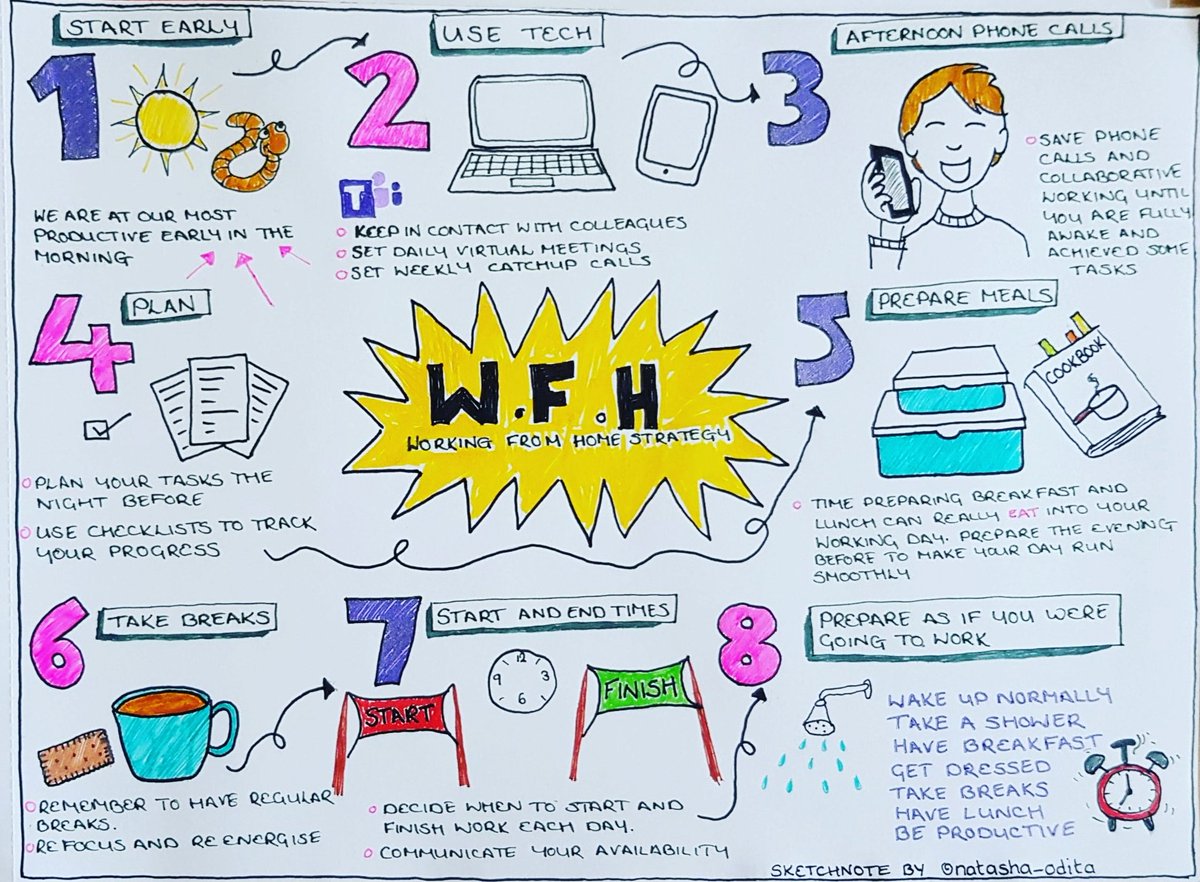 START EARLY
1
WE ARE AT OUR MOST
PRODUCTIVE EARLY IN THE
MORNING
USE TECH
2
T
KEEP IN CONTACT WITH COLLEAGUES
SET DAILY VIRTUAL MEETINGS
SET WEEKLY CATCHUP CALLS
AFTERNOON PHONE CALLS
3
SAVE PHONE
CALLS AND
COLLABORATIVE
WORKING UNTIL
YOU ARE FULLY
AWAKE AND
ACHIEVED SOME
TASKS
W.F.H
WORKING FROM HOME STRATEGY
4
PLAN
PLAN YOUR TASKS THE
NIGHT BEFORE
USE CHECKLISTS TO TRACK
YOUR PROGRESS
5
PREPARE MEALS
COOKBOOK
TIME PREPARING BREAKFAST AND
LUNCH CAN REALLY EAT INTO YOUR
WORKING DAY. PREPARE THE EVENING
BEFORE TO MAKE YOUR DAY RUN
SMOOTHLY
6
TAKE BREAKS
REMEMBER TO HAVE REGULAR
BREAKS.
REFOCUS AND RE ENERGISE
7
START AND END TIMES
12
9 3
6
START
FINISH
DECIDE WHEN TO START AND
FINISH WORK EACH DAY.
COMMUNICATE YOUR AVAILABILITY
8
PREPARE AS IF YOU WERE
GOING TO WORK
WAKE UP NORMALLY
TAKE A SHOWER
HAVE BREAKFAST
GET DRESSED
TAKE BREAKS
HAVE LUNCH
BE PRODUCTIVE
SKETCHNOTE BY @natasha_odita